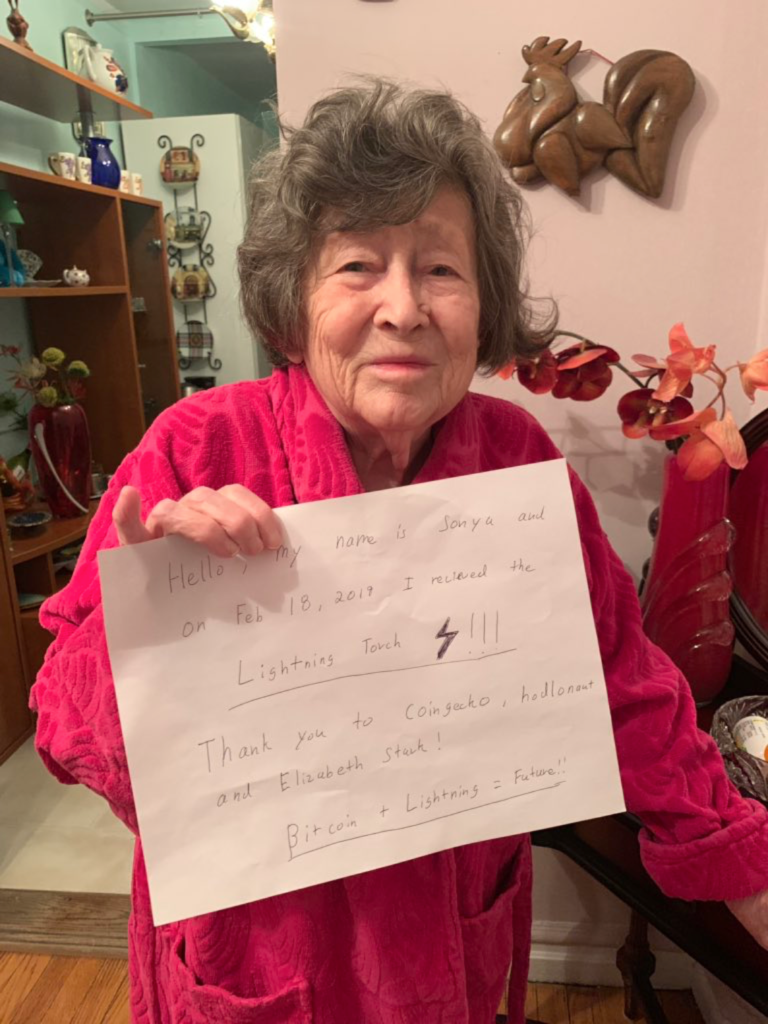 Hello, my name is Sonya and
on Feb 18, 2019 I recieved the
Lightning Torch ⚡!!!
Thank you to Coingecko, hodlonaut
and Elizabeth Stark!
Bitcoin + Lightning = Future!!